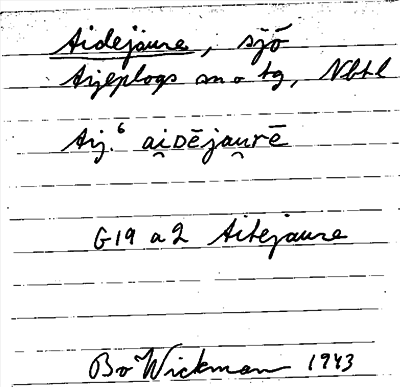 Aidejaure, sjö
Arjeplogs sn o tg, Nbtl
Arj.⁶ ai̯DējaU̯rē
G19 a 2 Aitejaure
Bo Wickman 1943